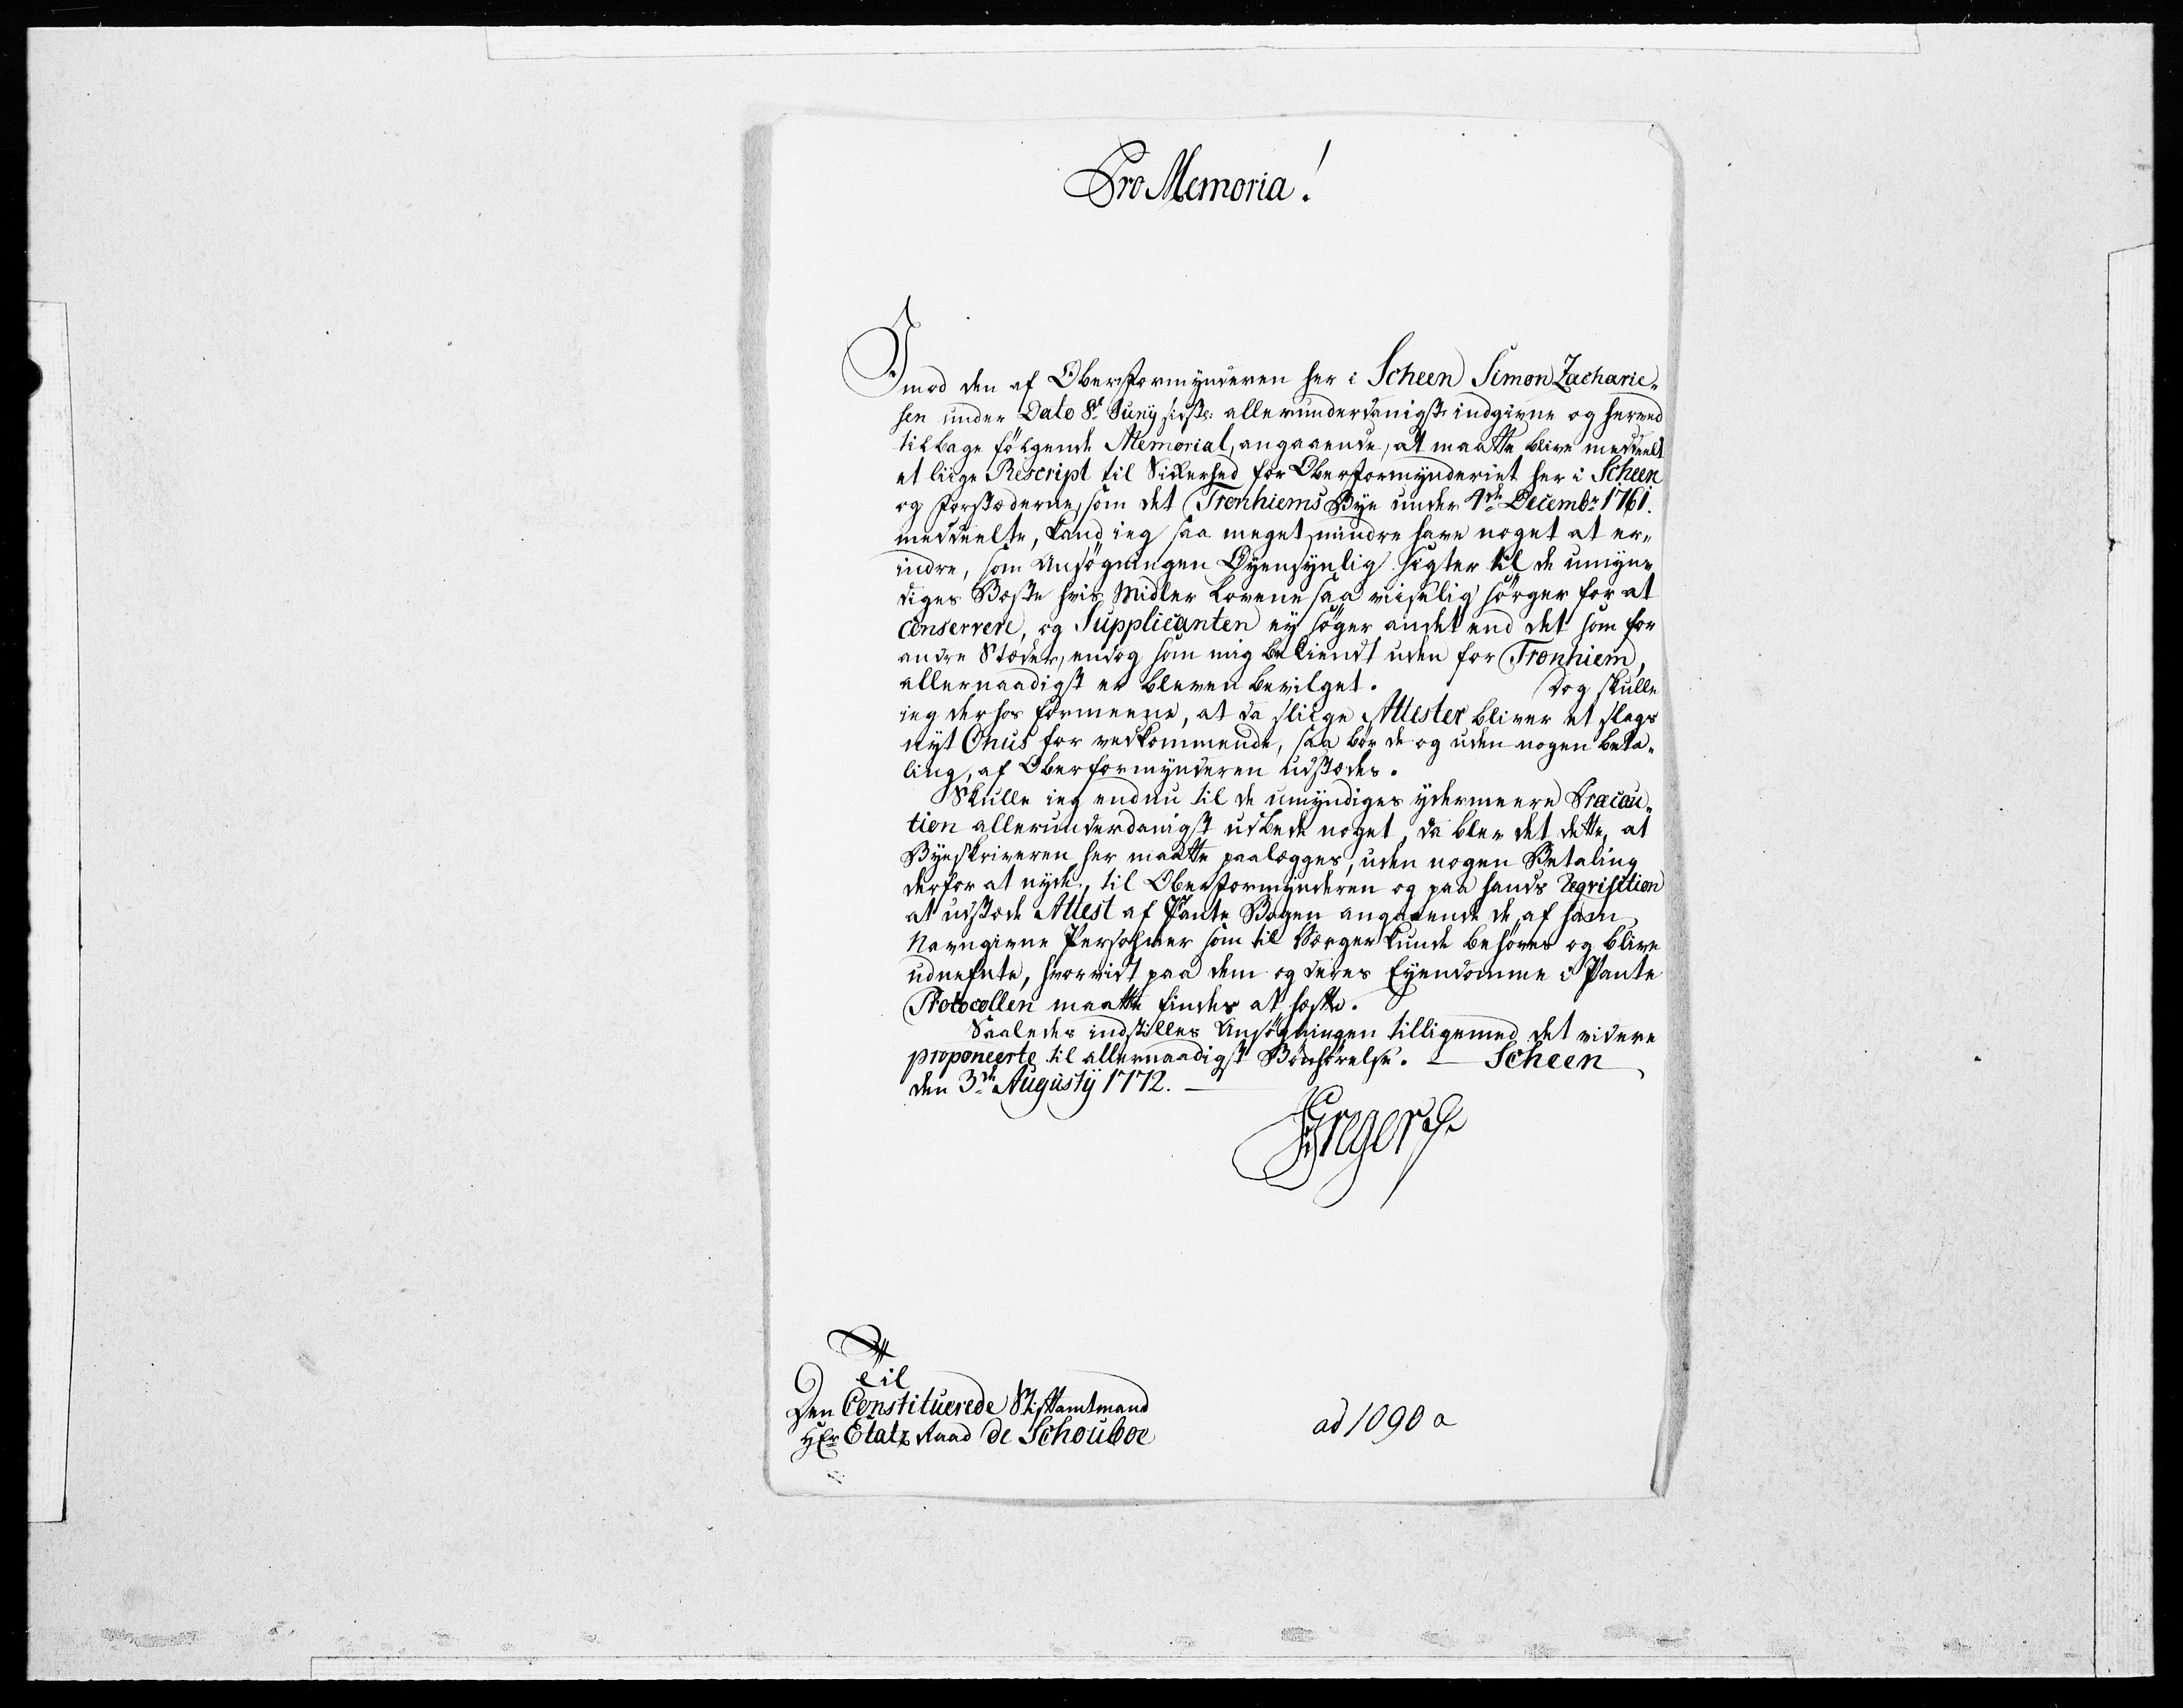 Pro Memoria!
Imod den af Oberformynderen her i Scheen Simon Zacharie„
sen under Dato 8t Juny sidstl: allerunderdanigst indgivne og herved
tilbage følgende Memorial, angaaende, at maatte blive meddeelt
et liige Rescript til Sikkerhed for Oberformynderiet her i Scheen
og Forstæderne, som det Tronhiems Bye under 4de Decembr 1761.
meddeelte, kand ieg saa meget mindre have noget at er„
indre, som Ansøgningen Øyensynlig sigter til de umyn„
diges Beste hvis Midler Lovene saa viiselig sørger for at
Conservere, og Supplicanten ey søger andet end det som for
andre Stæder, endog som mig bekiendt uden for Tronhiem,
allernaadigst er bleven bevilget. Dog skulle
ieg derhos formeene, at da sliige Attester bliver et slags
nyt Onus for vedkommende, saa bør de og uden nogen beta„
ling, af Oberformynderen udstædes.
Skulle ieg endnu til de umyndiges ydermeere Præcau„
tion allerunderdanigst udbede noget, da blev det dette, at
Byeskriveren her maatte paalægges, uden nogen Betaling
derfor at nyde, til Oberformynderen og paa hands Reqvisition
at udstæde Attest af Pante Bogen angaaende de af ham
Navngivne Persohner som til Værger kunde behøves og blive
udnefnte, hvorvidt paa dem og deres Eyendomme i Pante
Protocollen maatte findes at hæfte.
Saaledes indstilles Ansøgningen tilligemed det videre
proponeerte til allernaadigst Bønhørelse. — Scheen
den 3de Augusty 1772. —
Til
Den Constituerede Stiftamtmand
Hr Etatz Raad de Schouboe
ad 1090 a